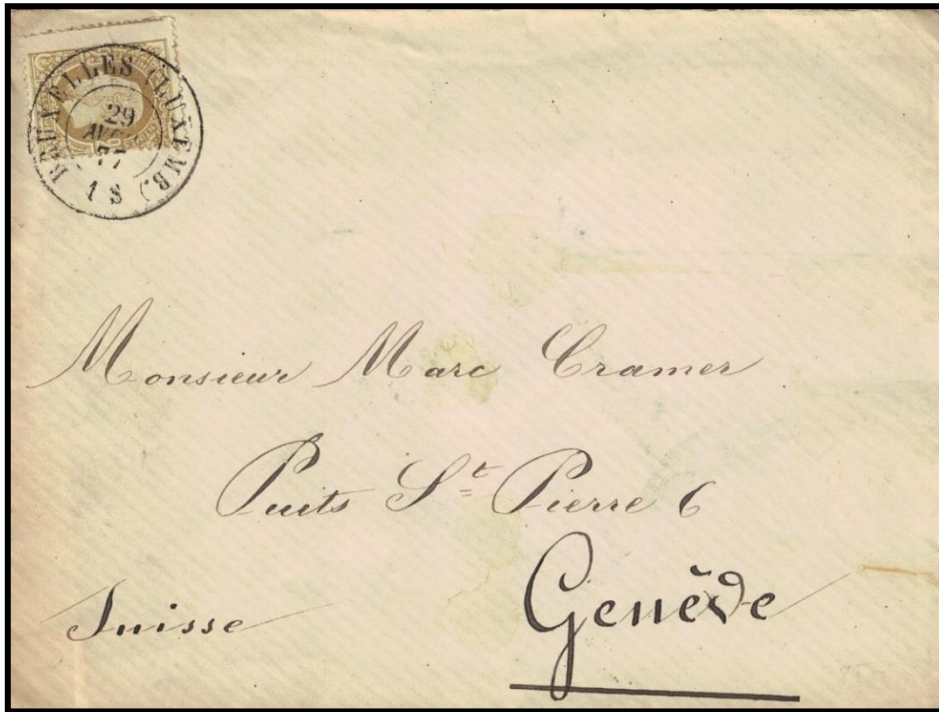 BRUXELLES (LUXEMB.)
29
77
1 S
Monsieur Marc Cramer
Puits St Pierre 6
Genève
Suisse